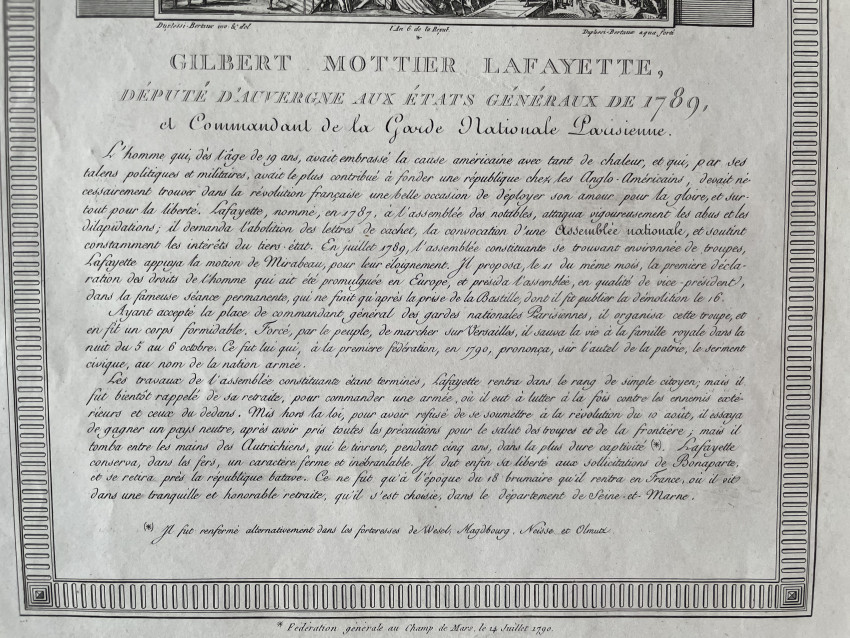 Duplessi-Bertaux inv. & del
l'An 6 de la Repub.
Duplessi-Bertaux aqua forti
*
GILBERT MOTTIER LAFAYETTE,
DÉPUTÉ D'AUVERGNE AUX ÉTATS GÉNÉRAUX DE 1789,
et Commandant de la Garde Nationale Parisienne.
L'homme qui, dès l'âge de 19 ans, avait embrassé la cause américaine avec tant de chaleur, et qui, par ses
talens politiques et militaires, avait le plus contribué à fonder une république chez les Anglo-Américains, devait né-
cessairement trouver dans la révolution française une belle occasion de déployer son amour pour la gloire, et sur-
tout pour la liberté. Lafayette, nommé, en 1787, à l'assemblée des notables, attaqua vigoureusement les abus et les
dilapidations; il demanda l'abolition des lettres de cachet, la convocation d'une Assemblée nationale, et soutint
constamment les intérêts du tiers-état. En juillet 1789, l'assemblée constituante se trouvant environnée de troupes,
Lafayette appuya la motion de Mirabeau, pour leur éloignement. Il proposa, le 11 du même mois, la première décla-
ration des droits de l'homme qui ait été promulguée en Europe, et présida l'assemblée, en qualité de vice-président,
dans la fameuse séance permanente, qui ne finit qu'après la prise de la Bastille, dont il fit publier la démolition le 16.
Ayant accepté la place de commandant général des gardes nationales Parisiennes, il organisa cette troupe, et
en fit un corps formidable. Forcé, par le peuple, de marcher sur Versailles, il sauva la vie à la famille royale dans la
nuit du 5 au 6 octobre. Ce fut lui qui, à la première fédération, en 1790, prononça, sur l'autel de la patrie, le serment
civique, au nom de la nation armée.
Les travaux de l'assemblée constituante étant terminés, Lafayette rentra dans le rang de simple citoyen; mais il
fut bientôt rappelé de sa retraite, pour commander une armée, où il eut à lutter à la fois contre les ennemis exté-
rieurs et ceux du dedans. Mis hors la loi, pour avoir refusé de se soumettre à la révolution du 10 août, il essaya
de gagner un pays neutre, après avoir pris toutes les précautions pour le salut des troupes et de la frontière; mais il
tomba entre les mains des Autrichiens, qui le tinrent, pendant cinq ans, dans la plus dure captivité (*). Lafayette
conserva, dans les fers, un caractère ferme et inébranlable. Il dut enfin sa liberté aux sollicitations de Bonaparte,
et se retira près la république batave. Ce ne fut qu'à l'époque du 18 brumaire qu'il rentra en France, où il vit
dans une tranquille et honorable retraite, qu'il s'est choisie, dans le département de Seine-et-Marne.
(*) Il fut renfermé alternativement dans les forteresses de Wesel, Magdbourg, Neisse et Olmutz.
* Fédération générale au Champ de Mars, le 14 Juillet 1790.